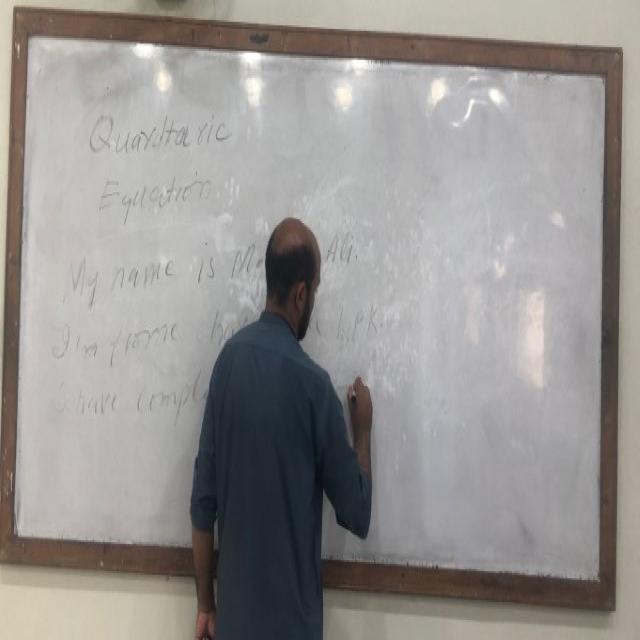 Quardtaric
Equation
My name is M AG.
I'm frome k.p.k.
I have compl